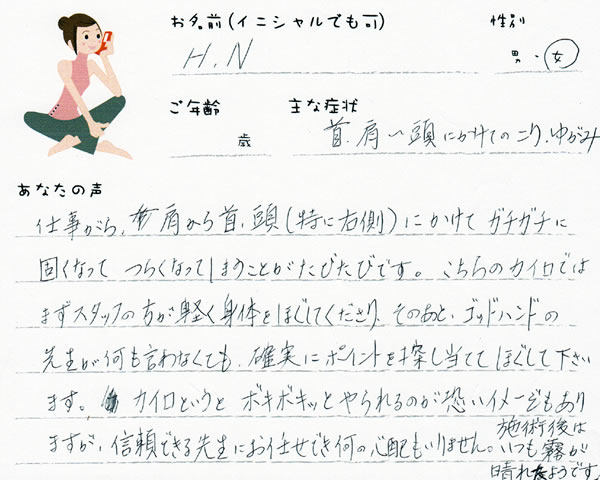 お名前(イニシャルでも可)
性別
H.N
男・女
ご年齢
主な症状
歳
首.肩〜頭にかけてのこり.ゆがみ
あなたの声
仕事がら、肩から首.頭(特に右側)にかけて ガチガチに
固くなって つらくなってしまうことがたびたびです。こちらのカイロでは
まずスタッフの方が軽く身体をほぐしてくださり、そのあと、ゴッドハンドの
先生が何も言わなくても、確実にポイントを探し当ててほぐして下さい
ます。カイロというと ボキボキッとやられるのが恐いイメージもあり
ますが、信頼できる先生にお任せでき何の心配もいりません。施術後は
いつも霧が
晴れたようです